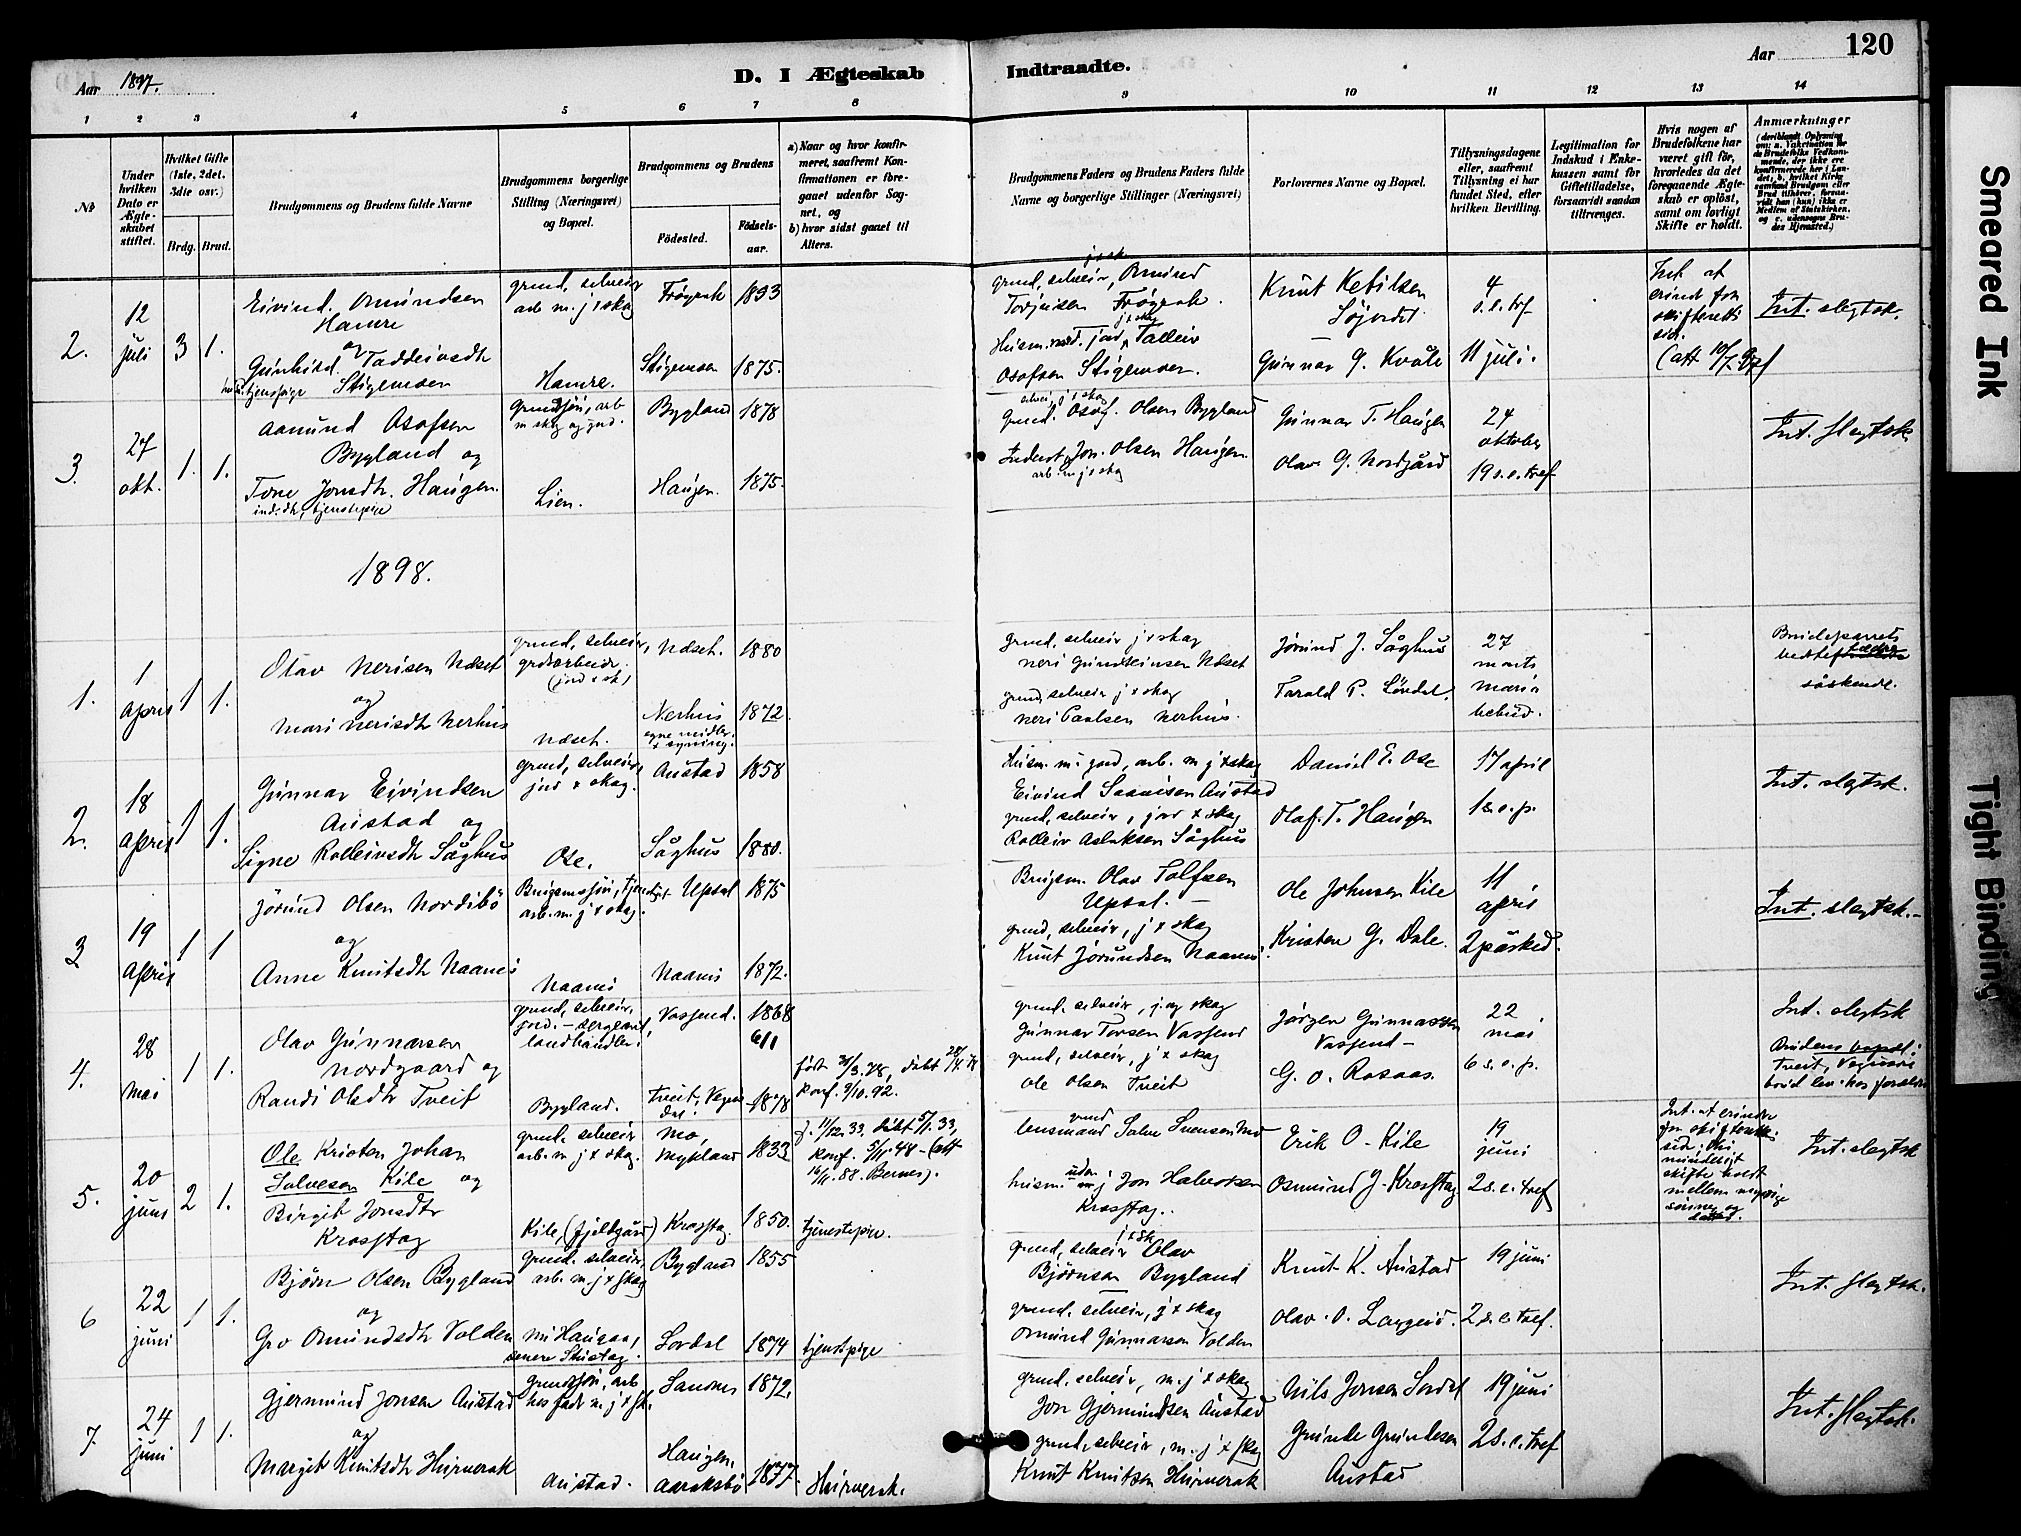 Aar 1897.
D. I Ægteskab Indtraadte.
Aar
120
1 2 3 4 5 6 7 8 9 10 11 12 13 14
№
Under hvilken Dato er Ægteskabet stiftet.
Hvilket Gifte (1ste, 2det, 3die osv.)
Brdg. Brud.
Brudgommens og Brudens fulde Navne
Brudgommens borgerlige Stilling (Næringsvei) og Bopæl.
Brudgommens og Brudens
Fødested.
Fødselsaar.
a) Naar og hvor konfirmeret, saafremt Konfirmationen er foregaaet udenfor Sognet, og
b) hvor sidst gaaet til Alters.
Brudgommens Faders og Brudens Faders fulde Navne og borgerlige Stillinger (Næringsvei)
Forlovernes Navne og Bopæl.
Tillysningsdagene eller, saafremt Tillysning ei har fundet Sted, efter hvilken Bevilling.
Legitimation for Indskud i Enkekassen samt for Giftetilladelse, forsaavidt saadan tiltrænges.
Hvis nogen af Brudefolkene har været gift før, hvorledes da det foregaaende Ægteskab er opløst, samt om lovligt Skifte er holdt.
Anmærkninger
2.
12 juli
3 1.
Eivind Omundsen Hamre
og
Gunhild Taddeivsdtr Stigemoen
tjenstpige
grund, selveir arb m. j & skog
Hamre.
Frøyrak 1893
Stigemoen 1875.
grund, selveir, j & sk Omund Torjusen Frøyrak.
Husm. med jord, j & skog Talleiv Osofsen Stigemoen.
Knut Ketilsen Søjordet
Gunnar G. Kvåle
4 s. e. tref
11 juli.
Int. slegtsk.
3.
27 okt.
1. 1.
Aamund Osofsen Bygland og
Tone Jonsdtr. Haugen.
ind. dtr, tjenstepige
Grundsøn, arb m skog og jord.
Lien.
Bygland 1878
Haugen. 1875.
Grund. selvei, j & skog Osof. Olsen Bygland
Inderst, Jon Olsen Haugen.
arb. m j & skog
Gunnar T. Haugen
Olav G. Nordgård
24 oktober
19 s. e. tref
Int. slegtsk
1898.
1.
1 april
1 1.
Olav Nerisen Næset
og
Mari Nerisdtr Nerhus
grund, selveir, grdsarbeide. (jord & sk)
Næset.
Næset. 1880
Nerhus 1872.
egne midler & syning.
grund, selveir j & skog
Neri Gundleinsen Næset
grund, selveir j & skog
Neri Paulsen Nerhus.
Jørund J. Såghus
Tarald P. Løvdal.
27 marts
maria bebud.
Brudeparrets bedstefædre søskende.
2.
18 april
1 1.
Gunnar Eivindsen Austad og
Signe Rolleivsdtr Såghus
grund, selveir, jord & skog.
Ose.
Austad 1858
Såghus 1880.
Husm. m. jord, arb. m j & skog
Eivind Saavisen Austad
grund, selveir, jord & skog
Rolleiv Aslaksen Såghus
Daniel E. Ose
Olaf. T. Haugen
17 april
1 s. e. p.
Int. slegtsk.
3
19 april
1 1
Jørund Olsen Nordibø
og
Anne Knutsdtr Naanes
Brugsmsøn, tjen arb. m. j & skog.
Naanes
Upstal 1875
Naanes 1872.
Brugsm. Olav Tolfsen Upstal. –
grund, selveir, j & skog
Knut Jørundsen Naanes.
Ole Johnsen Kile
Kristen G. Dale.
11 april
2 påsked.
Int. slegtsk. –
4.
28 mai
1 1.
Olav Gunnarsen Nordgaard og
Randi Olsdtr Tveit
grund, selveir, jord. – sergeant, landhandler.
Bygland.
Vassend. 1868 6/1
Tveit, Vegusdal 1878
født 31/3. 78, døbt 28/4. 78
konf. 9/10. 92.
grund, selveir, j. og skog
Gunnar Torsen Vassend
grund, selveir, j & skog
Ole Olsen Tveit
Jørgen Gunnarsen Vassend –
G. O. Rosaas.
22 mai
6 s. e. p.
Int. slegtsk
Brudens bopæl: Tveit, Vegusdal
brud lev. hos foreldre
5.
20 juni
2 1.
Ole Kristen Johan Salvesen Kile og
Birgit Jonsdtr Krosstag
grund. selveir arb. m j & skog.
Kile, (fjeldgård)
Mo, Mykland 1833
Krosstag. 1850.
f. 11/12. 33, døbt 5/1. 33,
konf. 5/11. 48 – (att 16/11. 88. Bernes).
tjenestepie.
grund lensmand Salve Svensen Mo
husm. uden j Jon Halvorsen Krosstag.
Erik O. Kile
Osmund J. Krosstag
19 juni
2 s. e. tref
Int. slegtsk
6
22 juni
1 1.
Bjørn Olsen Bygland
og
Gro Omundsdtr Volden
grund, selveir, arb. m. j & skog
nu Haugaa, senere Skustag.
Bygland 1855
Lordal 1874
tjenstpige
grund, selveir j & sk Olav Bjørnson Bygland
grund. selveir, j & skog
Omund Gunnarson Volden
Knut K. Austad
Olav. O. Langeid.
19 juni
2 s. e. tref.
Int. slegtsk.
7.
24 juni
1 1.
Gjermund Jonsen Austad
og
Margit Knutsdtr Hurverak
grundsøn, arb hos fadr m j & sk.
Austad.
Sandnes 1872.
Haugen, Aaraksbø 1877.
Hurverak.
grund. selveir, m. j & skog
Jon Gjermundsen Austad
grund, selveir, m. j & skog
Knut Knutsen Hurverak
Nils Jonsen Lordal
Grunde Grundesen Austad
19 juni
2 s. e. tref
Int. slegtsk.
Smeared Ink
Tight Binding